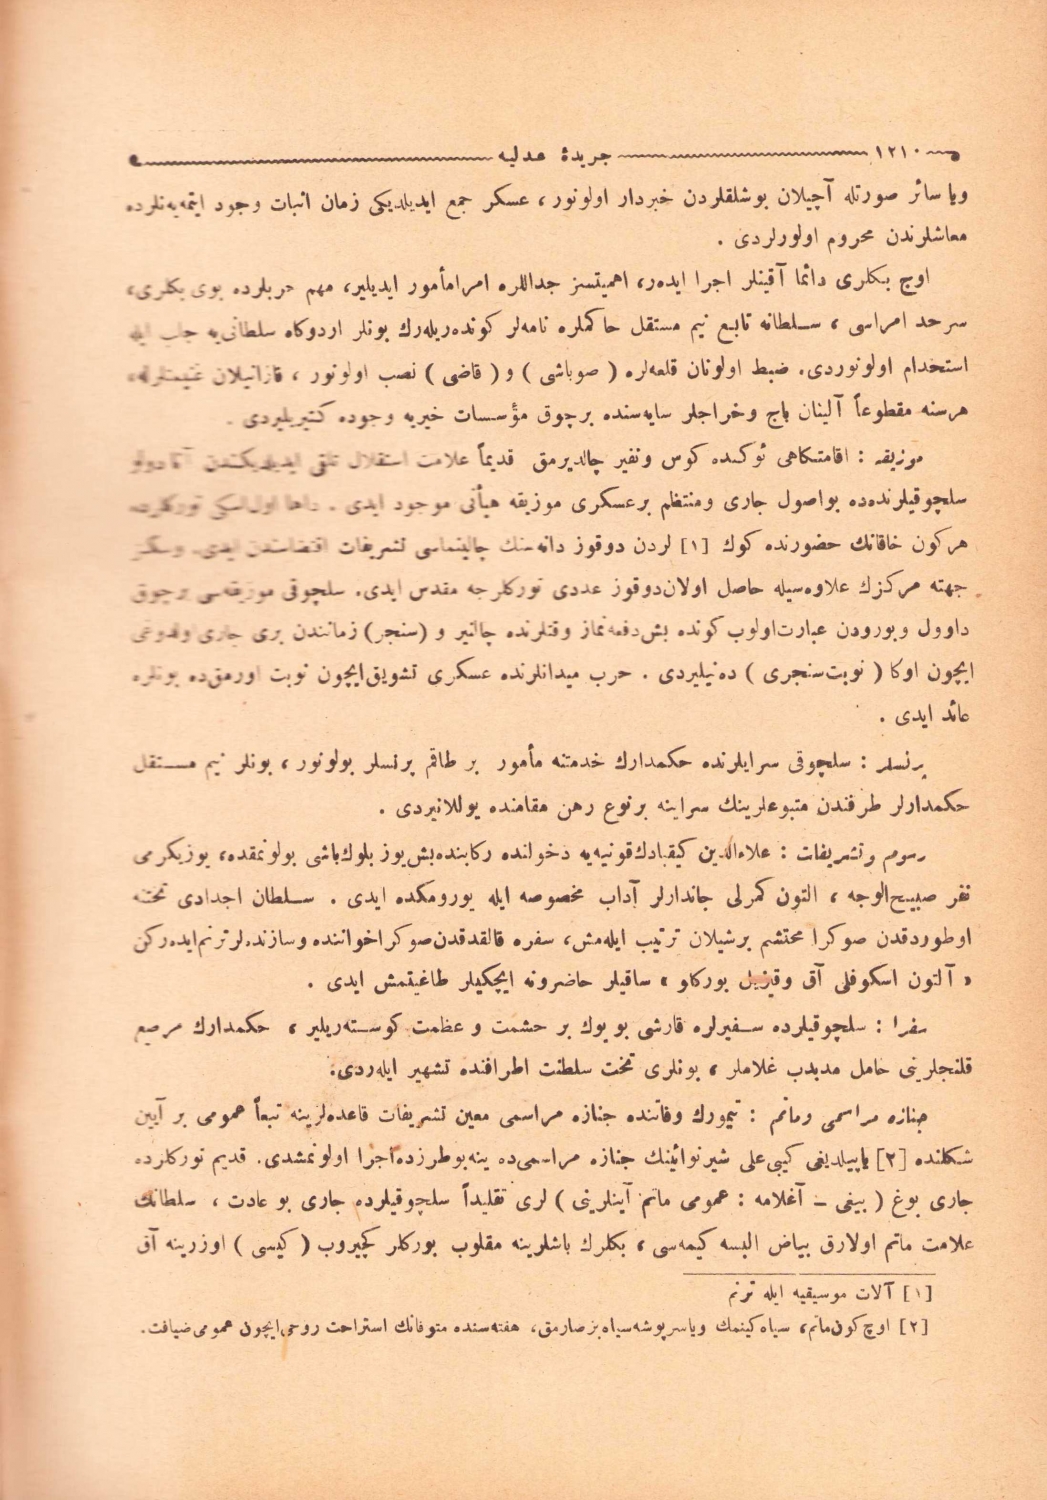 ١٢١٠ جريدهٔ عدليه
ويا سائر صورتله آچيلان بوشلقلردن خبردار اولونور ، عسكر جمع ايديلديكى زمان اثبات وجود ايتمه‌ينلرده
معاشلرندن محروم اولورلردى .
اوج بكلرى دائما آقينلر اجرا ايده‌ر، اهميتسز جداللره امرا مأمور ايديلير، مهم حربلرده بوى بكلرى،
سرحد امراسى ، سلطانه تابع نيم مستقل حاكملره نامه‌لر كونده‌ريله‌رك بونلر اردوكاه سلطانى‌يه جلب ايله
استخدام اولونوردى. ضبط اولونان قلعه‌لره ( صوباشى ) و ( قاضى ) نصب اولونور ، قازانيلان غنيمتلرله،
هرسنه مقطوعاً آلينان باج وخراجلر سايه‌سنده برچوق مؤسسات خيريه وجوده كتيريليردى .
موزيقه : اقامتكاهى ئوكنده كوس ونفير چالديرمق قديماً علامت استقلال تلقى ايديلديكندن آناطولو
سلچوقيلرنده‌ده بواصول جارى ومنتظم برعسكرى موزيقه هيأتى موجود ايدى . داها اول اسكى توركلرده
هركون خاقانك حضورنده كوك [١] لردن دوقوز دانه‌سنك چالينماسى تشريفات اقتضاسندن ايدى. وسكز
جهته مركزك علاوه‌سيله حاصل اولان دوقوز عددى توركلرجه مقدس ايدى. سلچوقى موزيقه‌سى برچوق
داوول وبورودن عبارت اولوب كونده بش دفعه نماز وقتلرنده چالنير و (سنجر) زمانندن برى جارى اولدوغى
ايچون اوكا ( نوبت سنجرى ) ده‌نيليردى . حرب ميدانلرنده عسكرى تشويق ايچون نوبت اورمق‌ده بونلره
عائد ايدى .
پرنسلر : سلچوقى سرايلرنده حكمدارك خدمتنه مأمور بر طاقم پرنسلر بولونور ، بونلر نيم مستقل
حكمدارلر طرفندن متبوعلرينك سراينه برنوع رهن مقامنده يوللانيردى .
رسوم وتشريفات : علاءالدين كيقبادك قونيه‌يه دخولنده ركابنده بش يوز بلوك‌باشى بولونمقده، يوزيكرمى
نفر صبيح‌الوجه ، التون كمرلى جاندارلر آداب مخصوصه ايله يورومكده ايدى . سلطان اجدادى تختنه
اوطوردقدن صوكرا محتشم برشيلان ترتيب ايله‌مش، سفره قالقدقدن صوكرا خواننده وسازنده‌لر ترنم ايده‌ركن
« آلتون اسكوفلى آق وقيزيل بوركاو » ساقيلر حاضرونه ايچكيلر طاغيتمش ايدى .
سفرا : سلچوقيلرده سفيرلره قارشى بويوك بر حشمت و عظمت كوسته‌ريلير ، حكمدارك مرصع
قلنجلرينى حامل مدبدب غلاملر ، بونلرى تخت سلطنت اطرافنده تشهير ايله‌ردى.
جنازه مراسمى وماتم : تيمورك وفاتنده جنازه مراسمى معين تشريفات قاعده‌لرينه تبعاً عمومى بر آيين
شكلنده [٢] ياپيلديغى كيبى على شير نوائينك جنازه مراسمى‌ده ينه بوطرزده اجرا اولونمشدى. قديم توركلرده
جارى يوغ ( ييغى ــ آغلامه : عمومى ماتم آينلرينى ) لرى تقليداً سلچوقيلرده جارى بو عادت ، سلطانك
علامت ماتم اولارق بياض البسه كيمه‌سى ، بكلرك باشلرينه مقلوب بوركلر كچيروب ( كيسى ) اوزرينه آق
[١] آلات موسيقيه ايله ترنم
[٢] اوچ كون ماتم، سياه كينمك وياسرپوشه سياه بز صارمق، هفته‌سنده متوفانك استراحت روحى ايچون عمومى ضيافت.